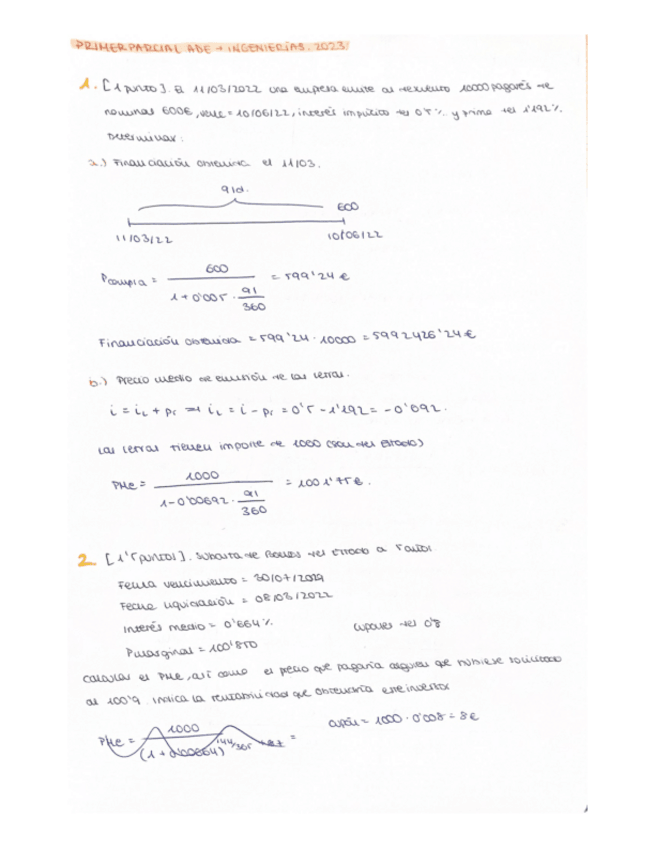 PRIMER PARCIAL ADE + INGENIERÍAS. 2023
1. [1 punto]. El 11/03/2022 una empresa emite al descuento 10000 pagarés de
nominal 600€, venc = 10/06/22, interés implícito del 0'5% y prima del 1'192%.
Determinar:
a.) Financiación obtenida el 11/03.
91d.
600
11/03/22 10/06/22
Pcompra = 600 / 1 + 0'005 · 91/360 = 599'24 €
Financiación obtenida = 599'24 · 10000 = 5992426'24 €
b.) Precio medio de emisión de las letras.
i = iL + pr ⇒ iL = i - pr = 0'5 - 1'192 = -0'092.
Las letras tienen importe de 1000 (son del estado)
PMe = 1000 / 1 - 0'00692 · 91/360 = 1001'75 €.
2 [1'5 puntos]. Subasta de Bonos del Estado a 5 años.
Fecha vencimiento = 30/07/2029
Fecha liquidación = 08/03/2022
Interés medio = 0'664% cupones del 0'8
Pmarginal = 100'850
Calcular el PMe, así como el precio que pagaría alguien que hubiese solicitado
al 100'9. Indica la rentabilidad que obtendría este inversor
cupón = 1000 · 0'008 = 8 €
PMe = 1000 / (1 + 0'00664)^144/365 =